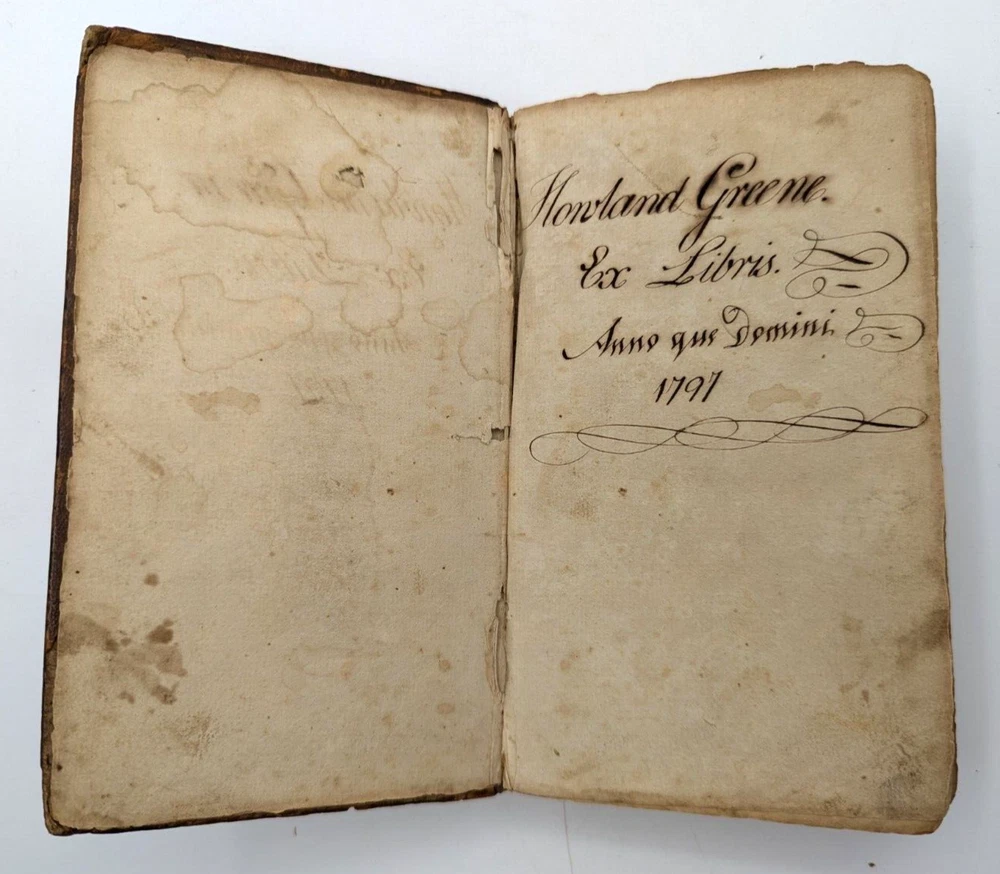 Howland Greene.
Ex Libris.
Anno que Domini
1797